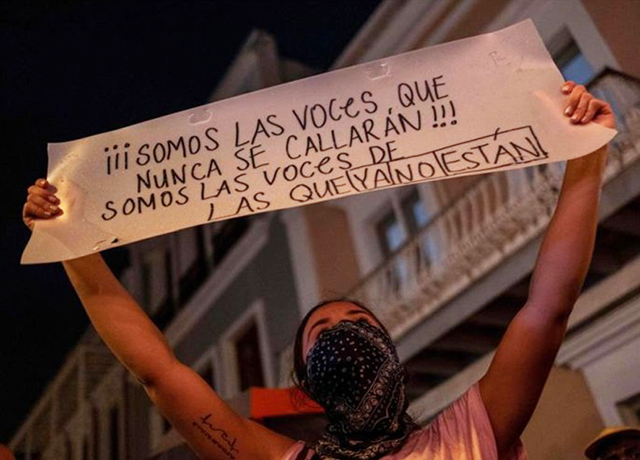 ¡¡¡SOMOS LAS VOCES QUE
NUNCA SE CALLARÁN!!!
SOMOS LAS VOCES DE
LAS QUE YA NO ESTÁN